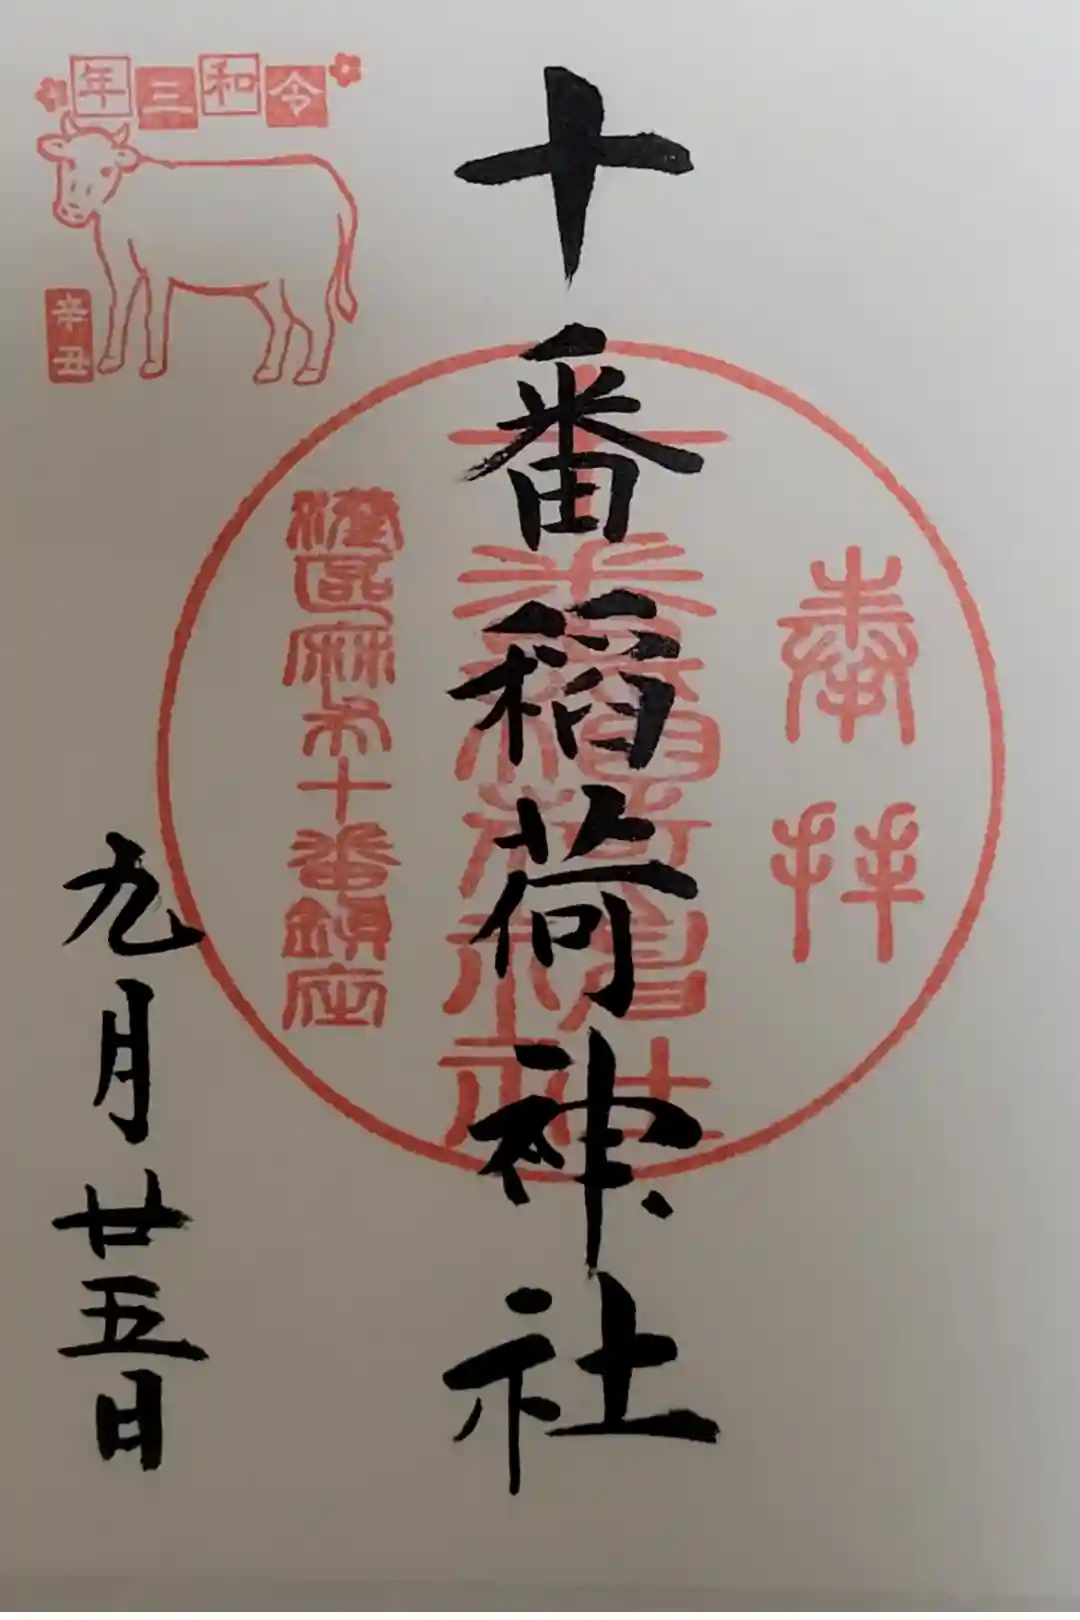 奉拝
十番稲荷神社
十番稲荷神社
港区麻布十番鎮座
令和三年
辛丑
九月廿五日